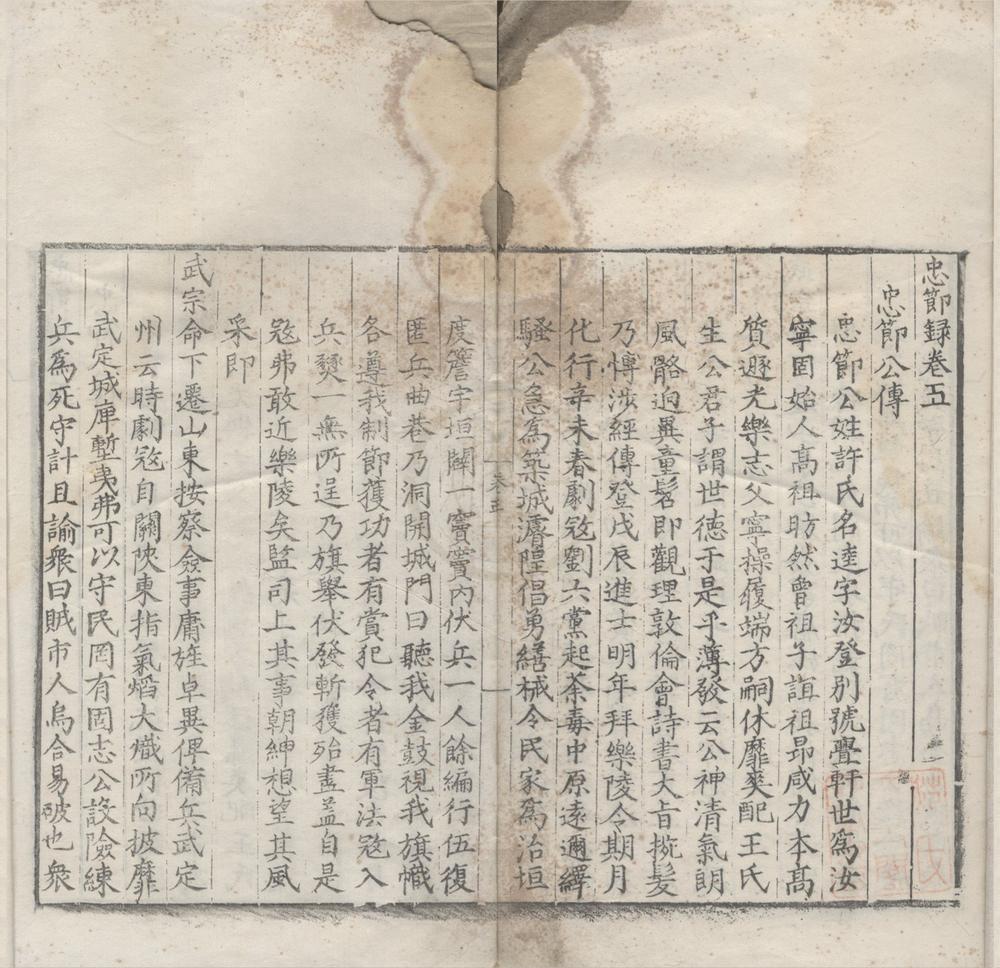 忠節録卷五
忠節公傳
忠節公姓許氏名逵字汝登別號疊軒世爲汝
寧固始人高祖昉然曾祖子誼祖昂咸力本高
質遯光樂志父寧操履端方嗣休靡爽配王氏
生公君子謂世德于是乎薄發云公神清氣朗
風骼逈異童髫即觀理敦倫會詩書大旨捥髮
乃慱涉經傳登戊辰進士明年拜樂陵令期月
化行辛未春劇冦劉六黨起荼毒中原遠邇繹
騷公急爲築城濬隍倡勇繕械令民家爲治垣
卷五
度簷宇垣闢一竇竇內伏兵一人餘編行伍復
匿兵曲巷乃洞開城門曰聽我金鼓視我旗幟
各遵我制節獲功者有賞犯令者有軍法冦入
兵獘一無所逞乃旗舉伏發斬獲殆盡葢自是
冦弗敢近樂陵矣監司上其事朝紳想望其風
采即
武宗命下遷山東按察僉事膺旌卓異俾備兵武定
州云時劇冦自關陜東指氣熖大熾所向披靡
武定城庳塹夷弗可以守民罔有固志公設險練
兵爲死守計且諭衆曰賊市人烏合易破也衆